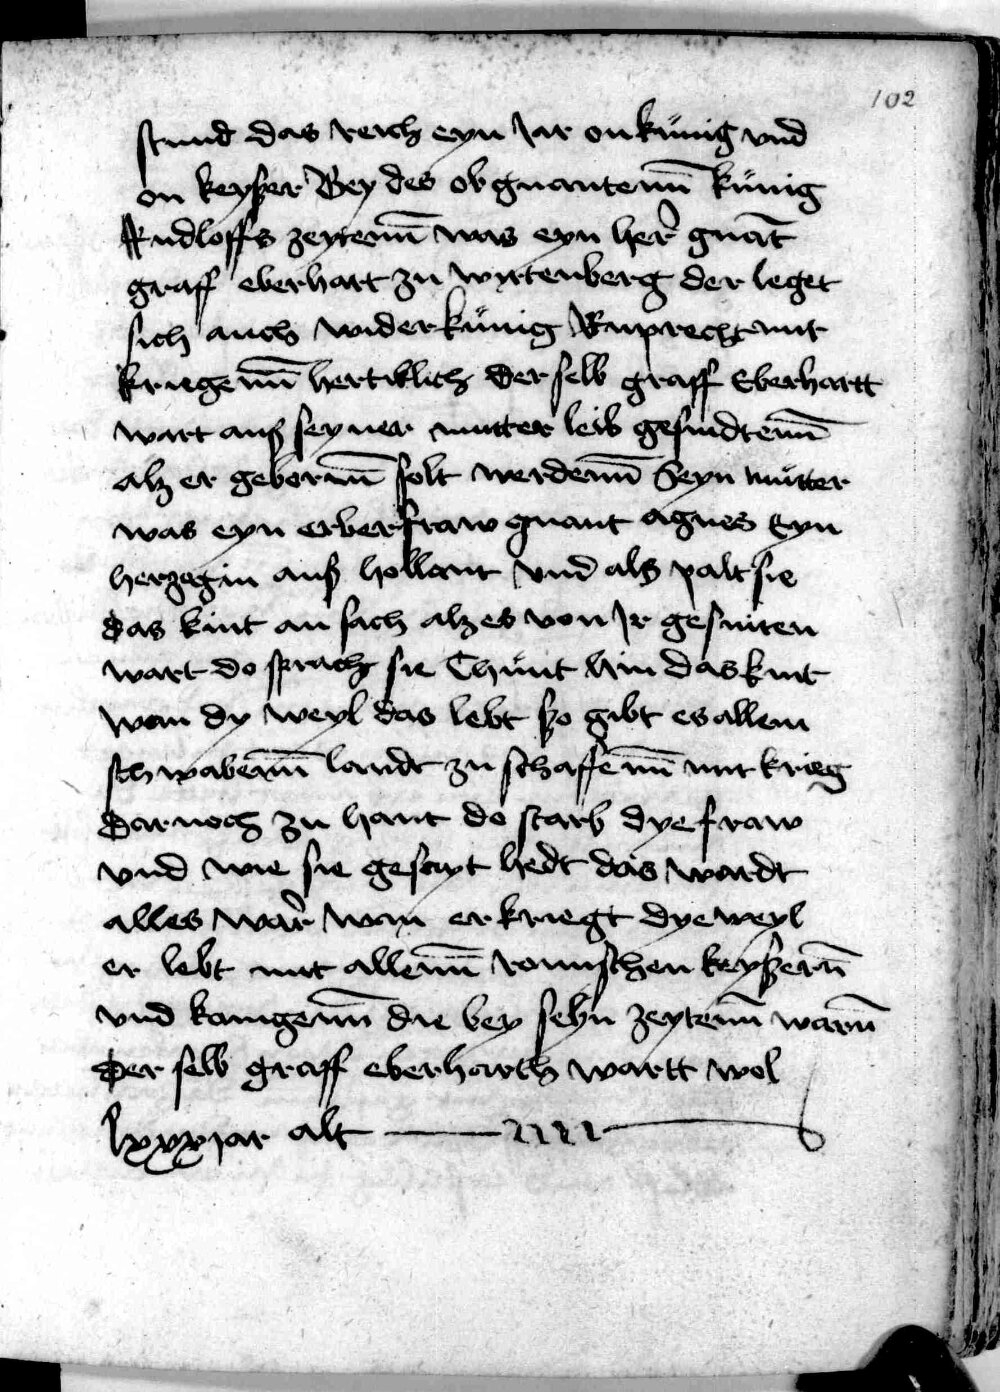 102
stund das reich eyn Jar on künig vnd
on keyßer Bey des ob gnantenn̄ künig
Rudloffs zeytenn̄ was eyn her̄ gnāt
graff eberhart zu wyrtenberg der leget
sich auch wider künig Rupprecht mit
kriegenn̄ herticklich Der selb graff Eberhartt
wart auß seyner mutter leib gesnidtenn̄
alz er geborenn̄ solt werdenn̄ Seyn mütter
was eyn erber fraw gnant agnes Eyn
herzegin auß hollant Vnd alß palt sie
das kint an sach alz es von Jr gesniten
wart do sprach sie Thünt hin das kint
wan dy weyl das lebt ßo gibt es allem
schwabenn̄ landt zu schaffenn̄ mit krieg
Darnoch zu hant do starb dye fraw
vnd wie sie gesayt hedt das wardt
alles war̄ wan er kriegt dye weyl
er lebt mit allenn̄ romischen keyßern̄
vnd konigenn̄ die bey seyn zeytenn̄ warn̄
Der selb graff eberharth wartt wol
lxxx jar alt